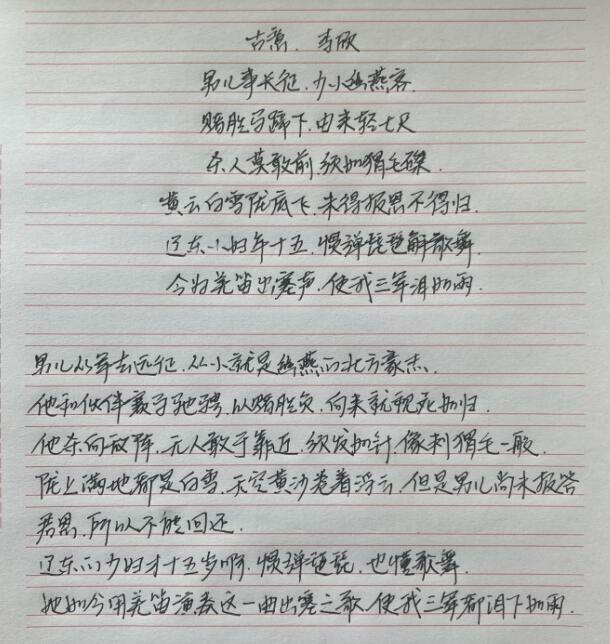 古意. 李欣
男儿事长征,少小幽燕客.
赌胜马蹄下,由来轻七尺
杀人莫敢前,须如猬毛磔.
黄云白雪陇底飞,未得报恩不得归.
辽东小妇年十五,惯弹琵琶解歌舞.
今为羌笛出塞声,使我三军泪如雨.
男儿从军去远征,从小就是幽燕的北方豪杰.
他和伙伴赛马驰骋,以赌胜负,向来就视死如归.
他杀向敌阵,无人敢于靠近,须发如针,像刺猬毛一般.
陇上满地都是白雪,天空黄沙卷着浮云,但是男儿尚未报答
君恩,所以不能回还.
辽东的少妇才十五岁啊,惯弹琵琶,也懂歌舞.
她如今用羌笛演奏这一曲出塞之歌,使我三军都泪下如雨.